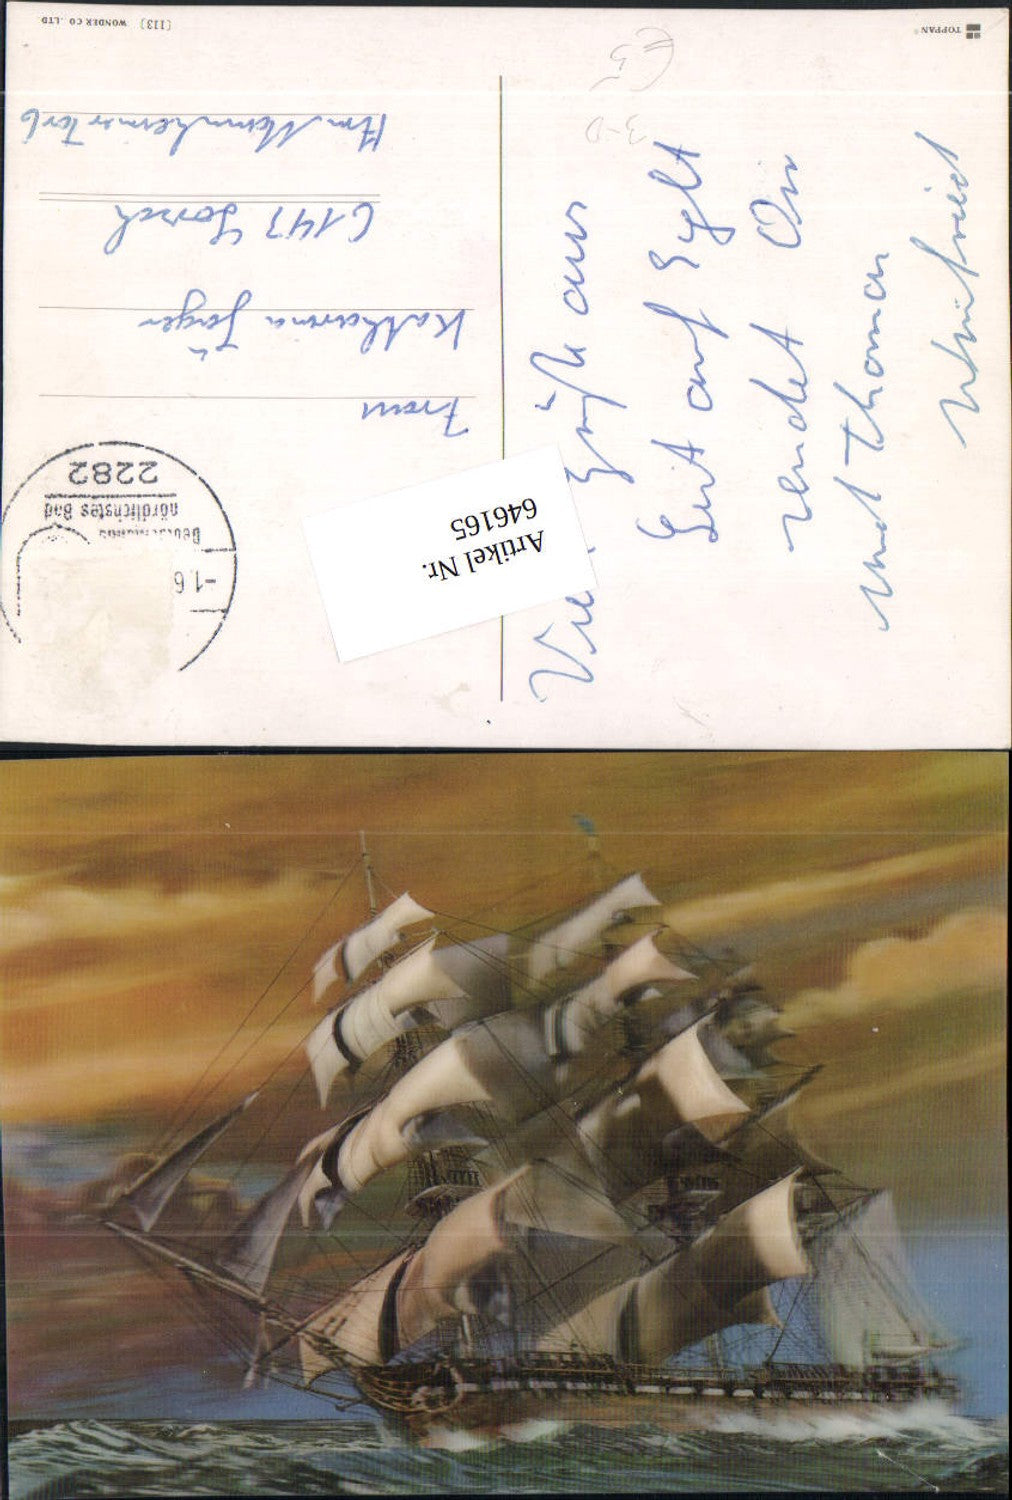 TOPPAN®
(113) WONDER CO .,LTD
Viele Grüße aus
List auf Sylt
sendet Dir
und Thomas
Winfried
3-D
Artikel Nr.
646165
-1.6
nördlichstes Bad
2282
Frau
Katharina Jäger
6143 Lorsch
Am Mannheimer